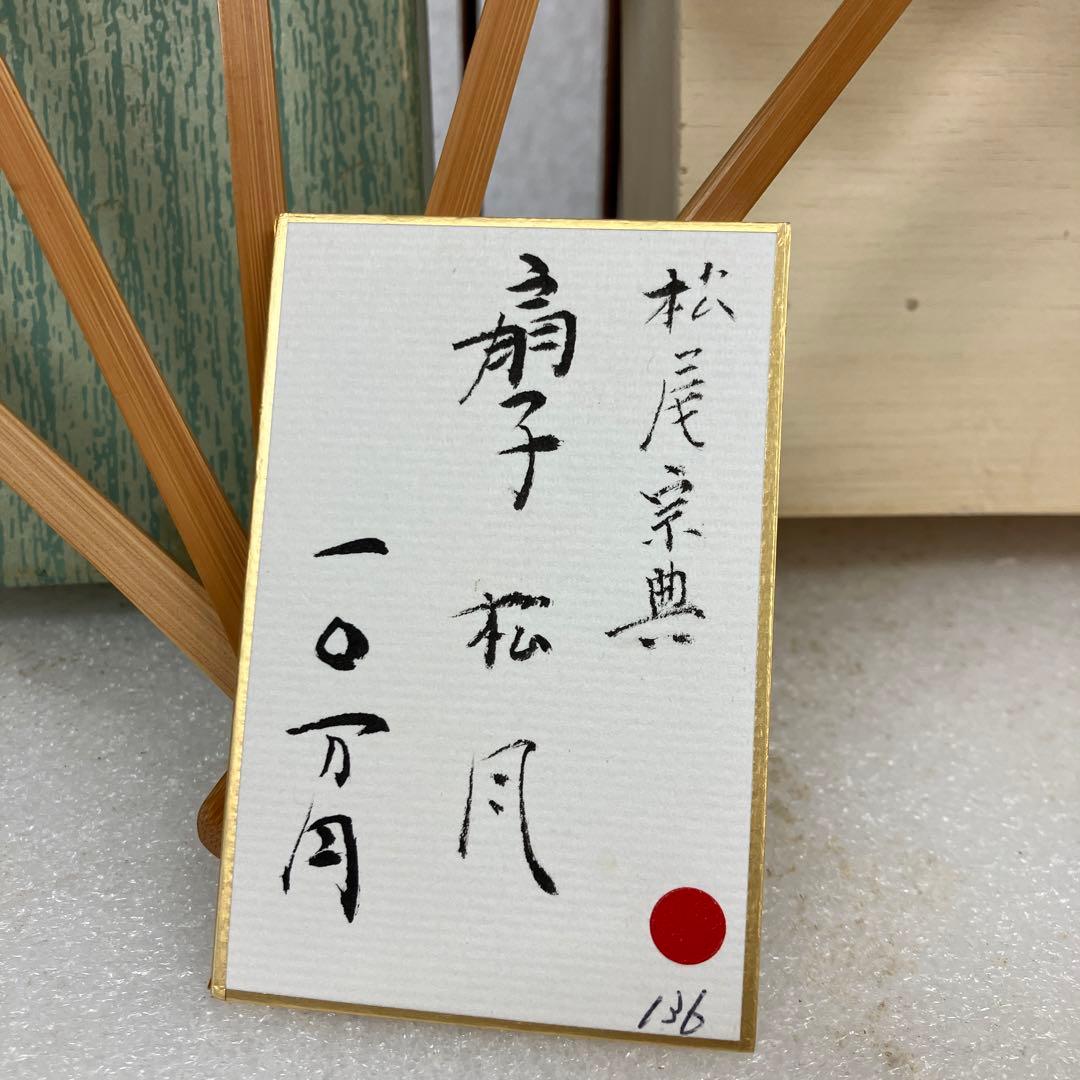 松尾宗典
扇子 松風
一〇万円
136